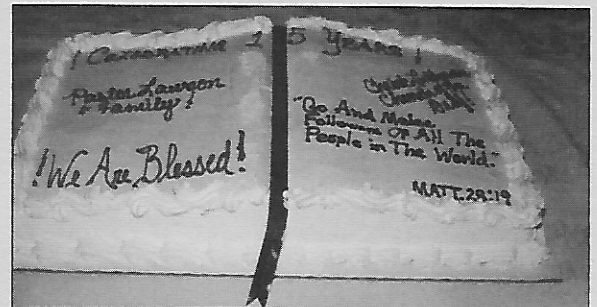 ! Celebrating 15 Years !
Pastor Lawson
& Family!
!We Are Blessed!
"Go And Make
Followers Of All The
People in The World."
MATT. 28:19